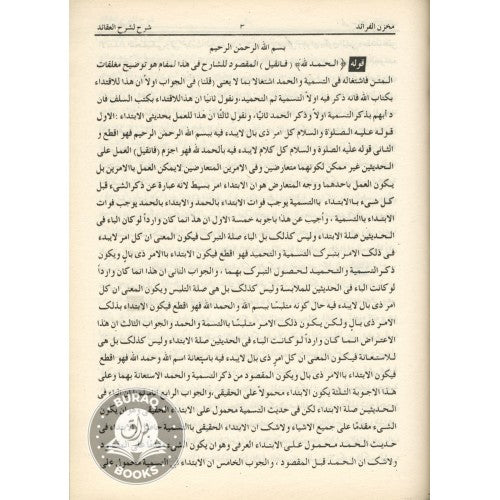 مخزن الفرائد ٣ شرح لشرح العقائد
بسم الله الرحمن الرحيم
قوله ﴿ الحمد لله ﴾ ( فان قيل ) المقصود للشارح فى هذا المقام هو توضيح مغلقات
المتن فاشتغاله فى التسمية والحمد اشتغالا بما لا يعنى ( قلنا ) فى الجواب اولا ان هذا للاقتداء
بكتاب الله فانه ذكر فيه اولاً التسمية ثم التحميد، ونقول ثانيًا ان هذا للاقتداء بكتب السلف فان
دأبهم بذكر التسمية اولاً وذكر الحمد ثانيًا، ونقول ثالثًا ان هذا للعمل بحديثى الابتداء الاول
قوله عليه الصلوة والسلام كل امر ذى بال لا يبدء فيه ببسم الله الرحمن الرحيم فهو اقطع و
الثانى قوله عليه الصلوة والسلام كل كلام لا يبدء فيه بالحمد لله فهو اجزم (فان قيل) العمل على
الحديثين غير ممكن لكونهما متعارضين وفى الامرين المتعارضين لا يمكن العمل بالامرين بل
يكون العمل باحدهما ووجه المتعارض هو ان الابتداء امر بسيط لانه عبارة عن ذكر الشىء قبل
الشىء فالابتداء بالتسمية يوجب فوات الابتداء بالحمد والابتداء بالحمد يوجب فوات
الابتداء بالتسمية ، وأجيب عن هذا باجوبه خمسة الاول ان هذا انما كان وارداً لو كان الباء فى
الحديثين صلة الابتداء وليس كذلك بل الباء صلة التبرك فيكون المعنى ان كل امر لا يبدء
فى ذلك الامر بتبرك التسمية و التحميد فهو اقطع فيكون الابتداء بشىء آخر ويكون
ذكر التسمية و التحميد لحصول التبرك بهما ، والجواب الثانى ان هذا انما كان وارداً
لو كانت الباء فى الحديثين للملابسة وليس كذلك بل هى صلة الابتداء وليس يكون المعنى ان كل
امر ذى بال لا يبدء فيه حال كونه متلبسًا بسم الله والحمد الله فهو اقطع فيكون الابتداء بذلك
الامر ذى بال ولكن يكون ذلك الامر متلبسًا بالتسمة والحمد والجواب الثالث ان هذا
الاعتراض انما كان وارداً لو كانت الباء صلة الابتداء وليس كذلك بل هى
للاستعانة فيكون المعنى ان كل امر ذى بال لا يبدء فيه باستعانة اسم الله وحمد الله فهو اقطع
فيكون الابتداء على امر ذى بال ويكون المقصود من ذكر التسمية والحمد الاستعانة بهما وعلى
هذا الاجوبة الثلثة يكون الابتداء محمولاً على الحقيقى، والجواب الرابع
الحديثين صلة الابتداء لكن فى حديث التسمية محمول على الابتداء الحقيقى ان يكون
الشىء مقدمًا على جميع الاشياء ولا شك ان الابتداء
حديث الحمد محمول على الابتداء العرفى وهو ان يكون
ولا شك ان الحمد قبل المقصود ، والجواب الخامس ان الابتداء التسمية محمول على
BURAQ
BOOKS